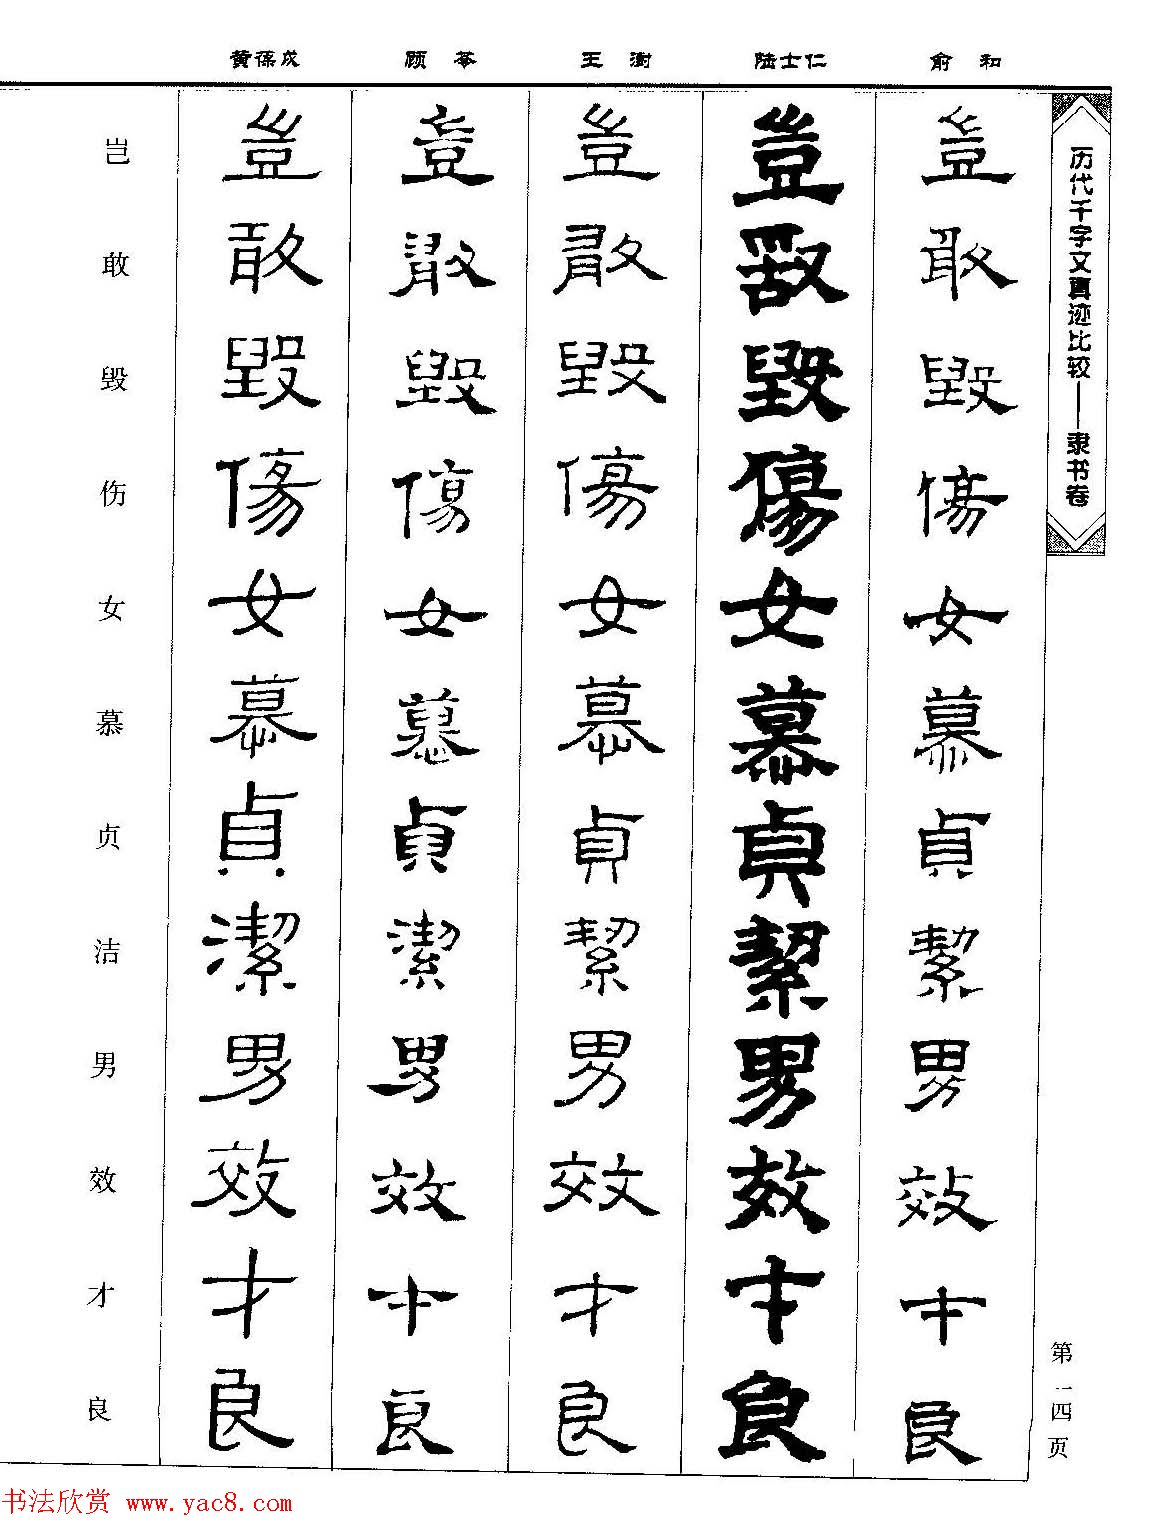 历代千字文真迹比较——隶书卷
第一四页
俞和
豈敢毀傷女慕貞絜男效才良
陆士仁
豈敢毀傷女慕貞絜男效才良
王澍
豈敢毀傷女慕貞絜男效才良
顾苓
豈敢毀傷女慕貞潔男效才良
黄葆戉
豈敢毀傷女慕貞潔男效才良
岂敢毁伤女慕贞洁男效才良
书法欣赏 www.yac8.com